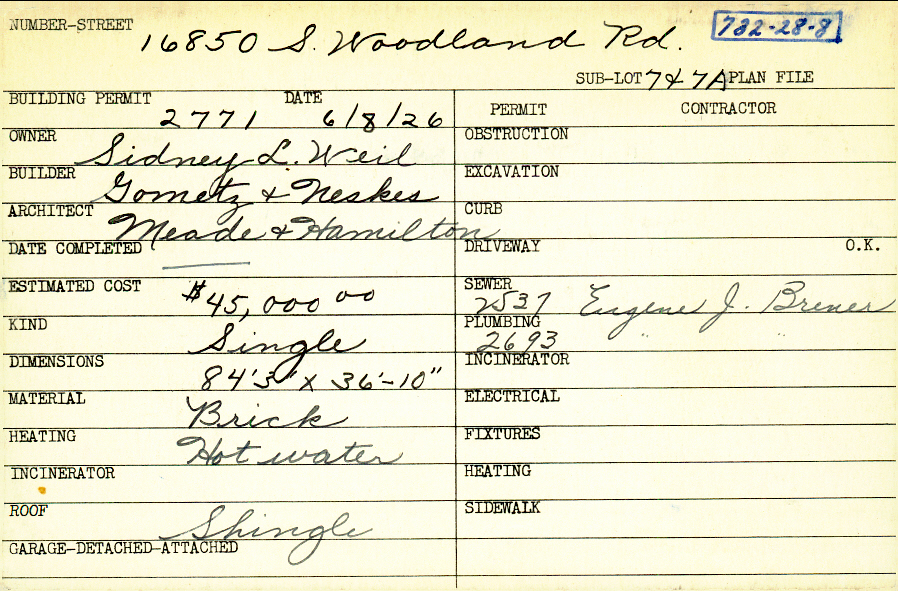 NUMBER-STREET 16850 S. Woodland Rd. 732-28-8
SUB-LOT 7 & 7A PLAN FILE
BUILDING PERMIT 2771 DATE 6/8/26
PERMIT CONTRACTOR
OWNER Sidney L. Weil
OBSTRUCTION
BUILDER Gometz & Neskes
EXCAVATION
ARCHITECT Meade & Hamilton
CURB
DATE COMPLETED
DRIVEWAY O.K.
ESTIMATED COST $45,000 00
SEWER 2537 Eugene J. Brener
KIND Single
PLUMBING 2693 " "
DIMENSIONS 84'3" x 36'-10"
INCINERATOR
MATERIAL Brick
ELECTRICAL
HEATING Hot water
FIXTURES
INCINERATOR
HEATING
ROOF Shingle
SIDEWALK
GARAGE-DETACHED-ATTACHED